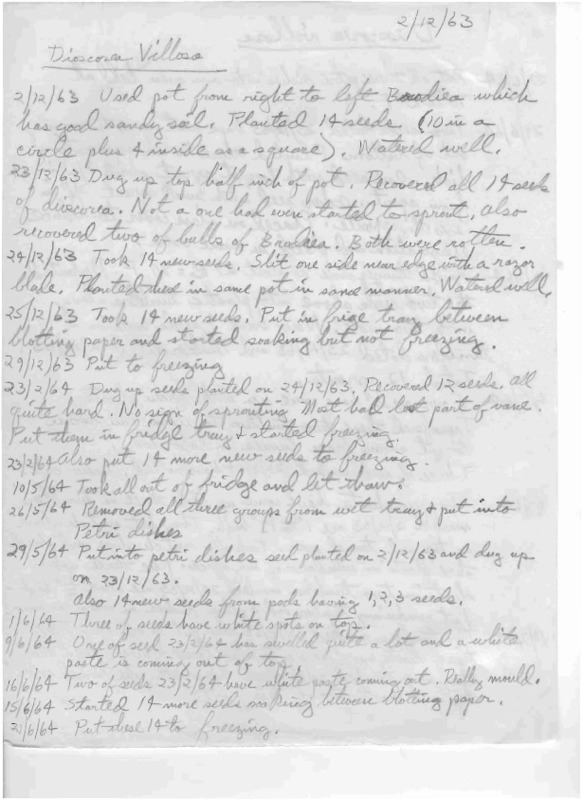 2/12/63
Dioscorea Villosa
2/12/63 Used pot from right to left Brodiea which
has good sandy soil. Planted 14 seeds (10 in a
circle plus 4 inside as a square). Watered well.
23/12/63 Dug up top half inch of pot. Recovered all 14 seeds
of dioscorea. Not a one had even started to sprout, also
recovered two of bulbs of Brodiea. Both were rotten.
24/12/63 Took 14 new seeds. Slit one side near edge with a razor
blade. Planted in same pot in same manner. Watered well.
25/12/63 Took 14 new seeds. Put in frige tray between
blotting paper and started soaking but not freezing.
29/12/63 Put to freezing
23/2/64 Dug up seeds planted on 24/12/63. Recovered 12 seeds. all
quite hard. No sign of sprouting Most had lost part of vane.
Put them in fridge tray & started freezing.
23/2/64 Also put 14 more new seeds to freezing.
10/5/64 Took all out of fridge and let thaw.
26/5/64 Removed all three groups from wet tray & put into
Petri dishes
29/5/64 Put into petri dishes seed planted on 2/12/63 and dug up
on 23/12/63.
Also 14 new seeds from pods having 1, 2, 3 seeds.
1/6/64 Three of seeds have white spots on top.
9/6/64 One of seed 23/2/64 has swelled quite a lot and a white
paste is coming out of top.
16/6/64 Two of seeds 23/2/64 have white paste coming out. Really mould.
15/6/64 Started 14 more seeds soaking between blotting paper.
21/6/64 Put these 14 to freezing.